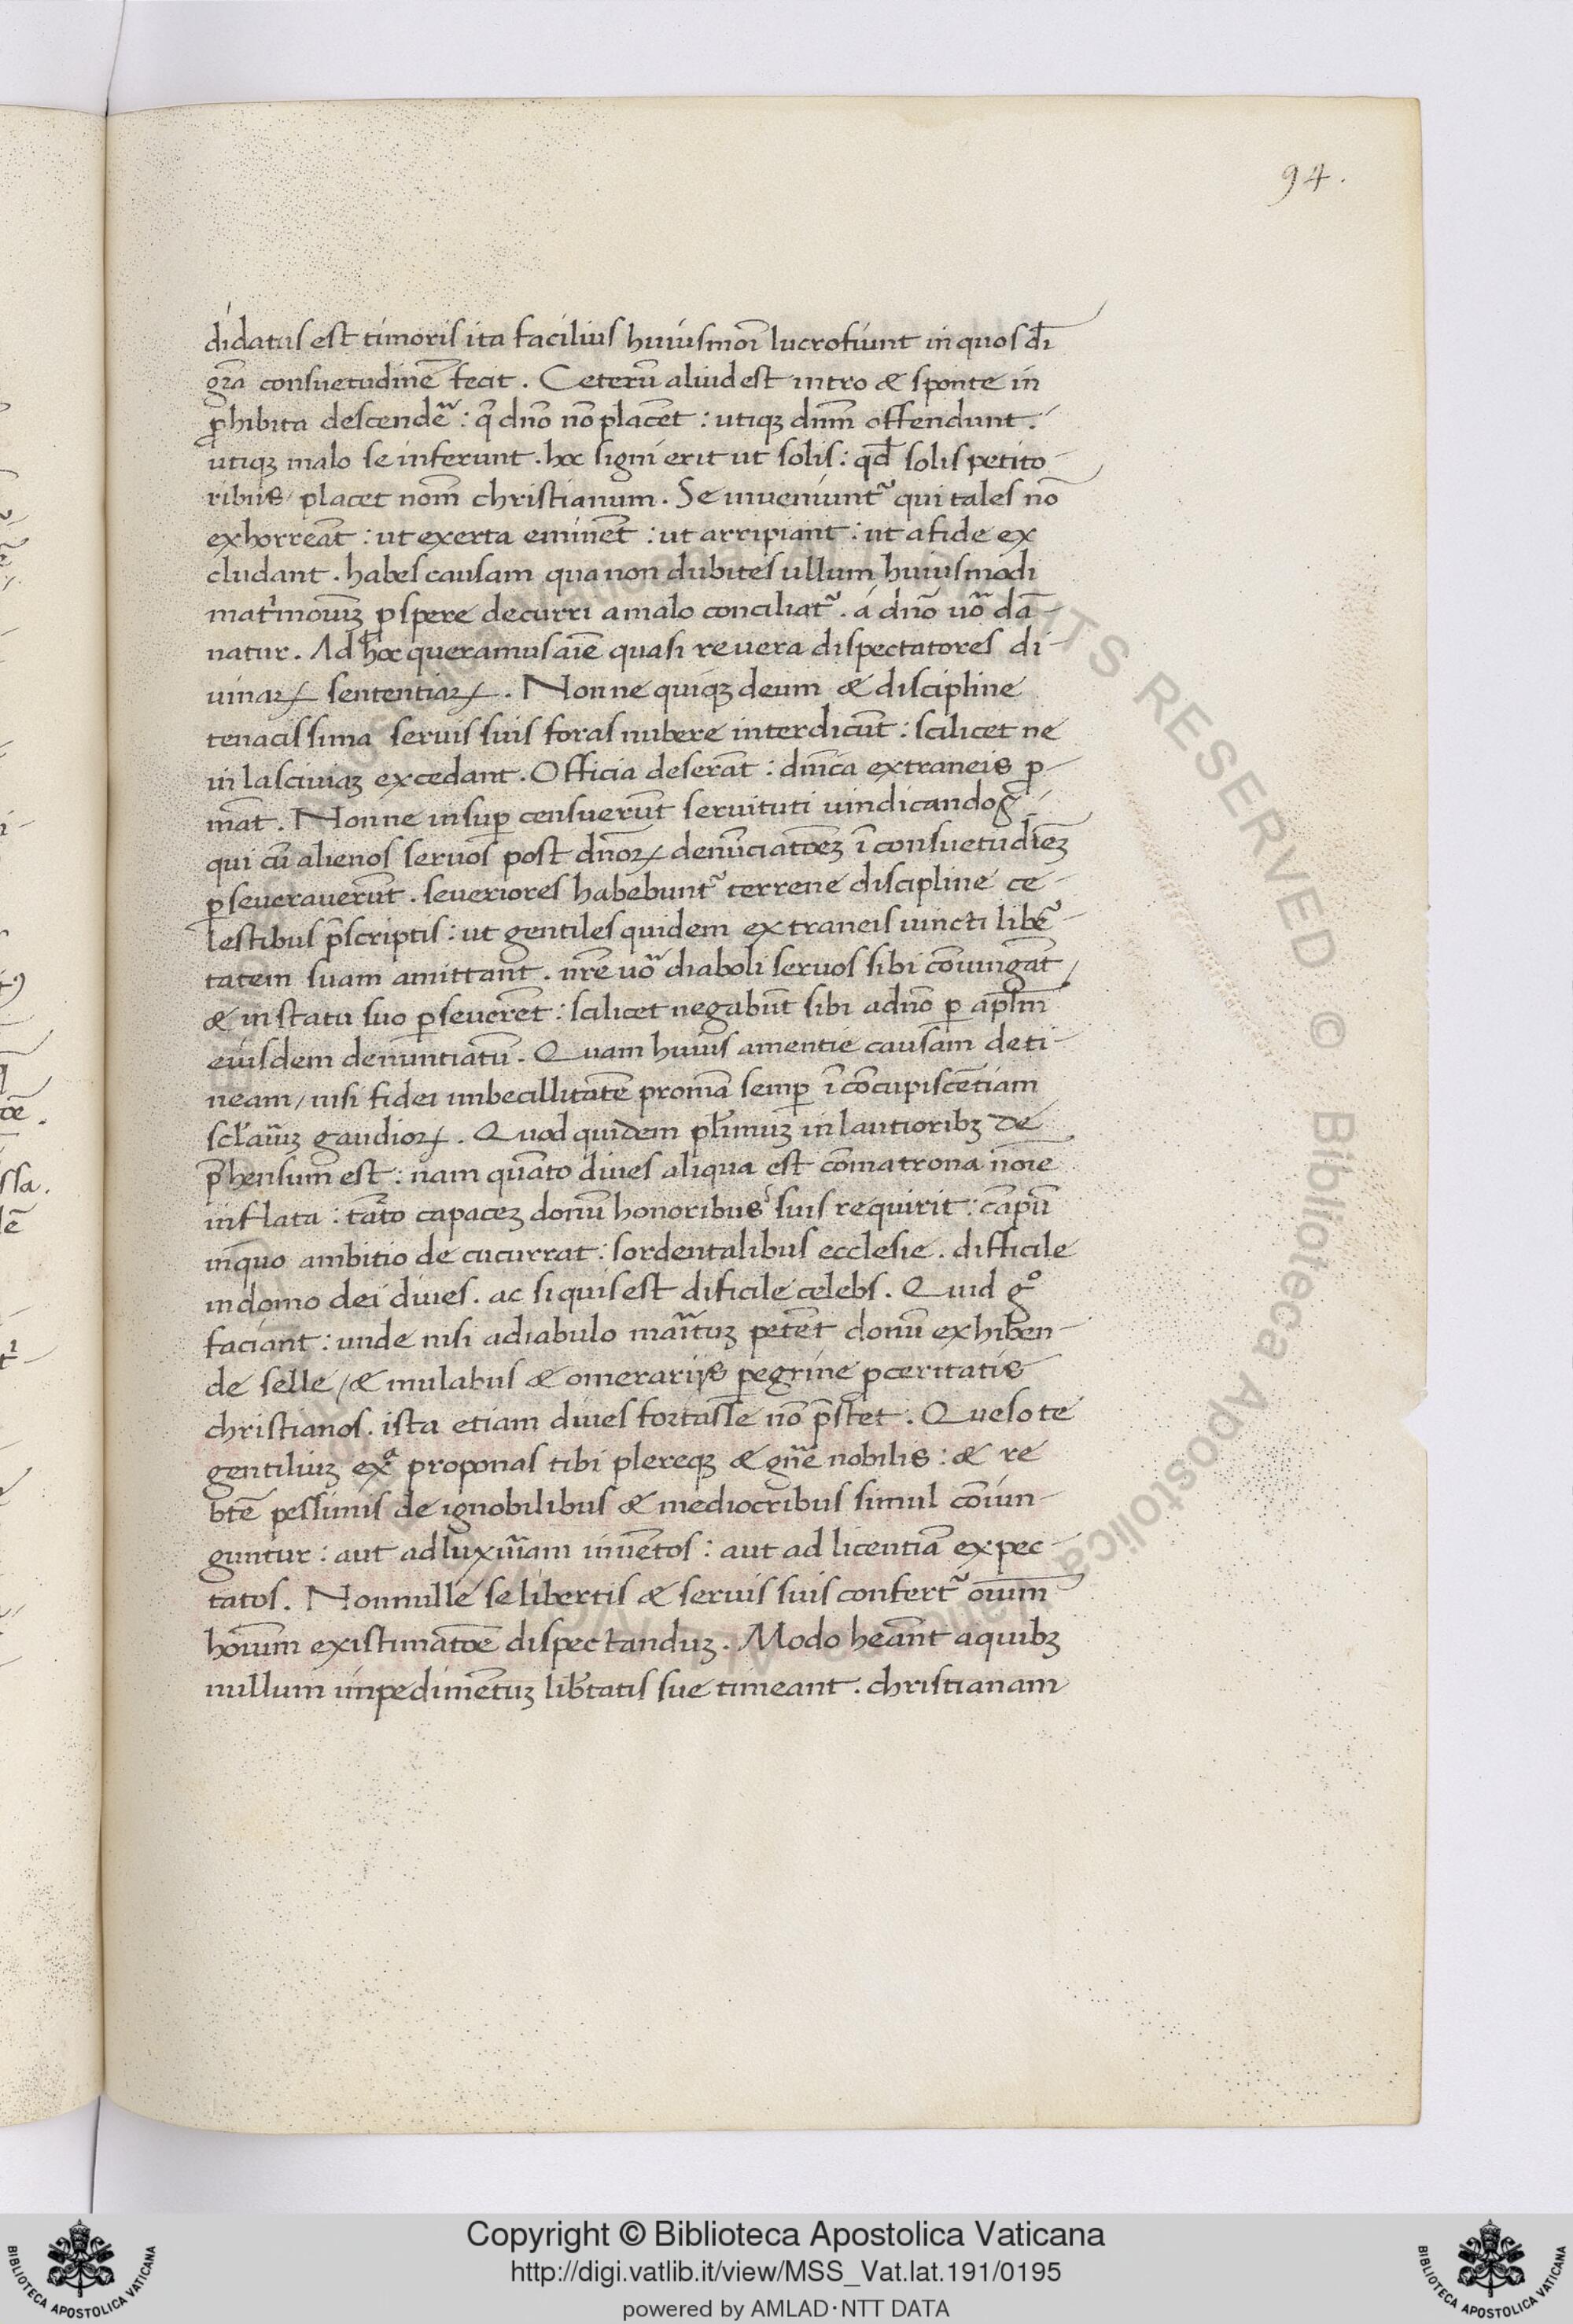 94.
didatus est timoris ita facilius huiusmoı̄ lucrofiunt in quos dı̄
gr̄a consuetudinē fecit. Ceterū aliud est intro & sponte in
ꝓhibita descendẽ: q̄ dn̄o nō placēt: utiqꝫ dnm̄ offendunt.
utiqꝫ malo se inferunt. hoc signi erit ut solis: qđ solis petito-
ribus / placet nom̄ christianum. Se inveniuntᷣ qui tales nō
exhorreāt: ut exerta eminēt: ut arripiant: ut a fide ex
cludant. habes causam qua non dubites ullum huiusmodi
matⁱmoniūꝫ ꝓspere decurri a malo conciliatᷣ. á dn̄o uō dā-
natur. Ad hoc queramus aiē quasi revera dispectatores di-
uinaꝝ sententiaꝝ. Nonne quiqꝫ deum & discipline
tenacissima servis suis foras nubere interdicūt: scilicet ne
in lasciviaꝫ excedant. Officia deserāt: dnı̄ca extraneis ꝓ-
māt. Nonne insuꝑ censuerūt servituti vindicandos
qui cū alienos servos post dn̄oꝝ denūciatōeꝫ ī consuetudı̄eꝫ
ꝑseverauerūt. severiores habebuntᷣ terrene discipline ce-
lestibus p̄scriptis: ut gentiles quidem extraneis vincti libẽ-
tatem suam amittant. nr̄e uō diaboli servos sibi cōiungāt /
& in statu suo ꝑseverēt: scilicet negabūt sibi adnō ꝑ apl̄m
eiusdem denuntiatū. Quam huius amentie causam deti-
neam / nisi fidei imbecillitatē promā semꝑ ī cōcupiscētiam
scl̄ariūꝫ gaudioꝝ. Quod quidem pl̄imuꝫ in lautioribꝫ de
p̄hensum est: nam quāto dives aliqua est cōmatrona noīe
inflata: tāto capaceꝫ donū honoribus suis requirit: cāpū
inquo ambitio decucurrat: sordentalibus ecclesie. difficile
in domo dei dives. ac si quis est dificile celebs. Quid gᵒ
faciant: unde nisi adiabulo marituꝫ petēt donū exhibēn-
de selle / & mulabus & omerarijs ꝑegrine ꝓceritatis
christianos. ista etiam dives fortasse nō p̄stet. Queso te
gentiliuꝫ exᵃ proponas tibi plereqꝫ & gn̄e nobilis: & re
btē pessimis de ignobilibus & mediocribus simul cōiun-
guntur: aut ad luxuriam inuētos: aut ad licentiā expec-
tatos. Nonnulle se libertis & servis suis confertᷣ oīum
hoīum existimatōe dispectanduꝫ. Modo heānt a quibꝫ
nullum impedimētuꝫ lib̄tatis sue timeant. christianam
RIGHTS RESERVED © Biblioteca Apostolica Vaticana
Copyright © Biblioteca Apostolica Vaticana
http://digi.vatlib.it/view/MSS_Vat.lat.191/0195
powered by AMLAD·NTT DATA
BIBLIOTECA APOSTOLICA VATICANA
BIBLIOTECA APOSTOLICA VATICANA